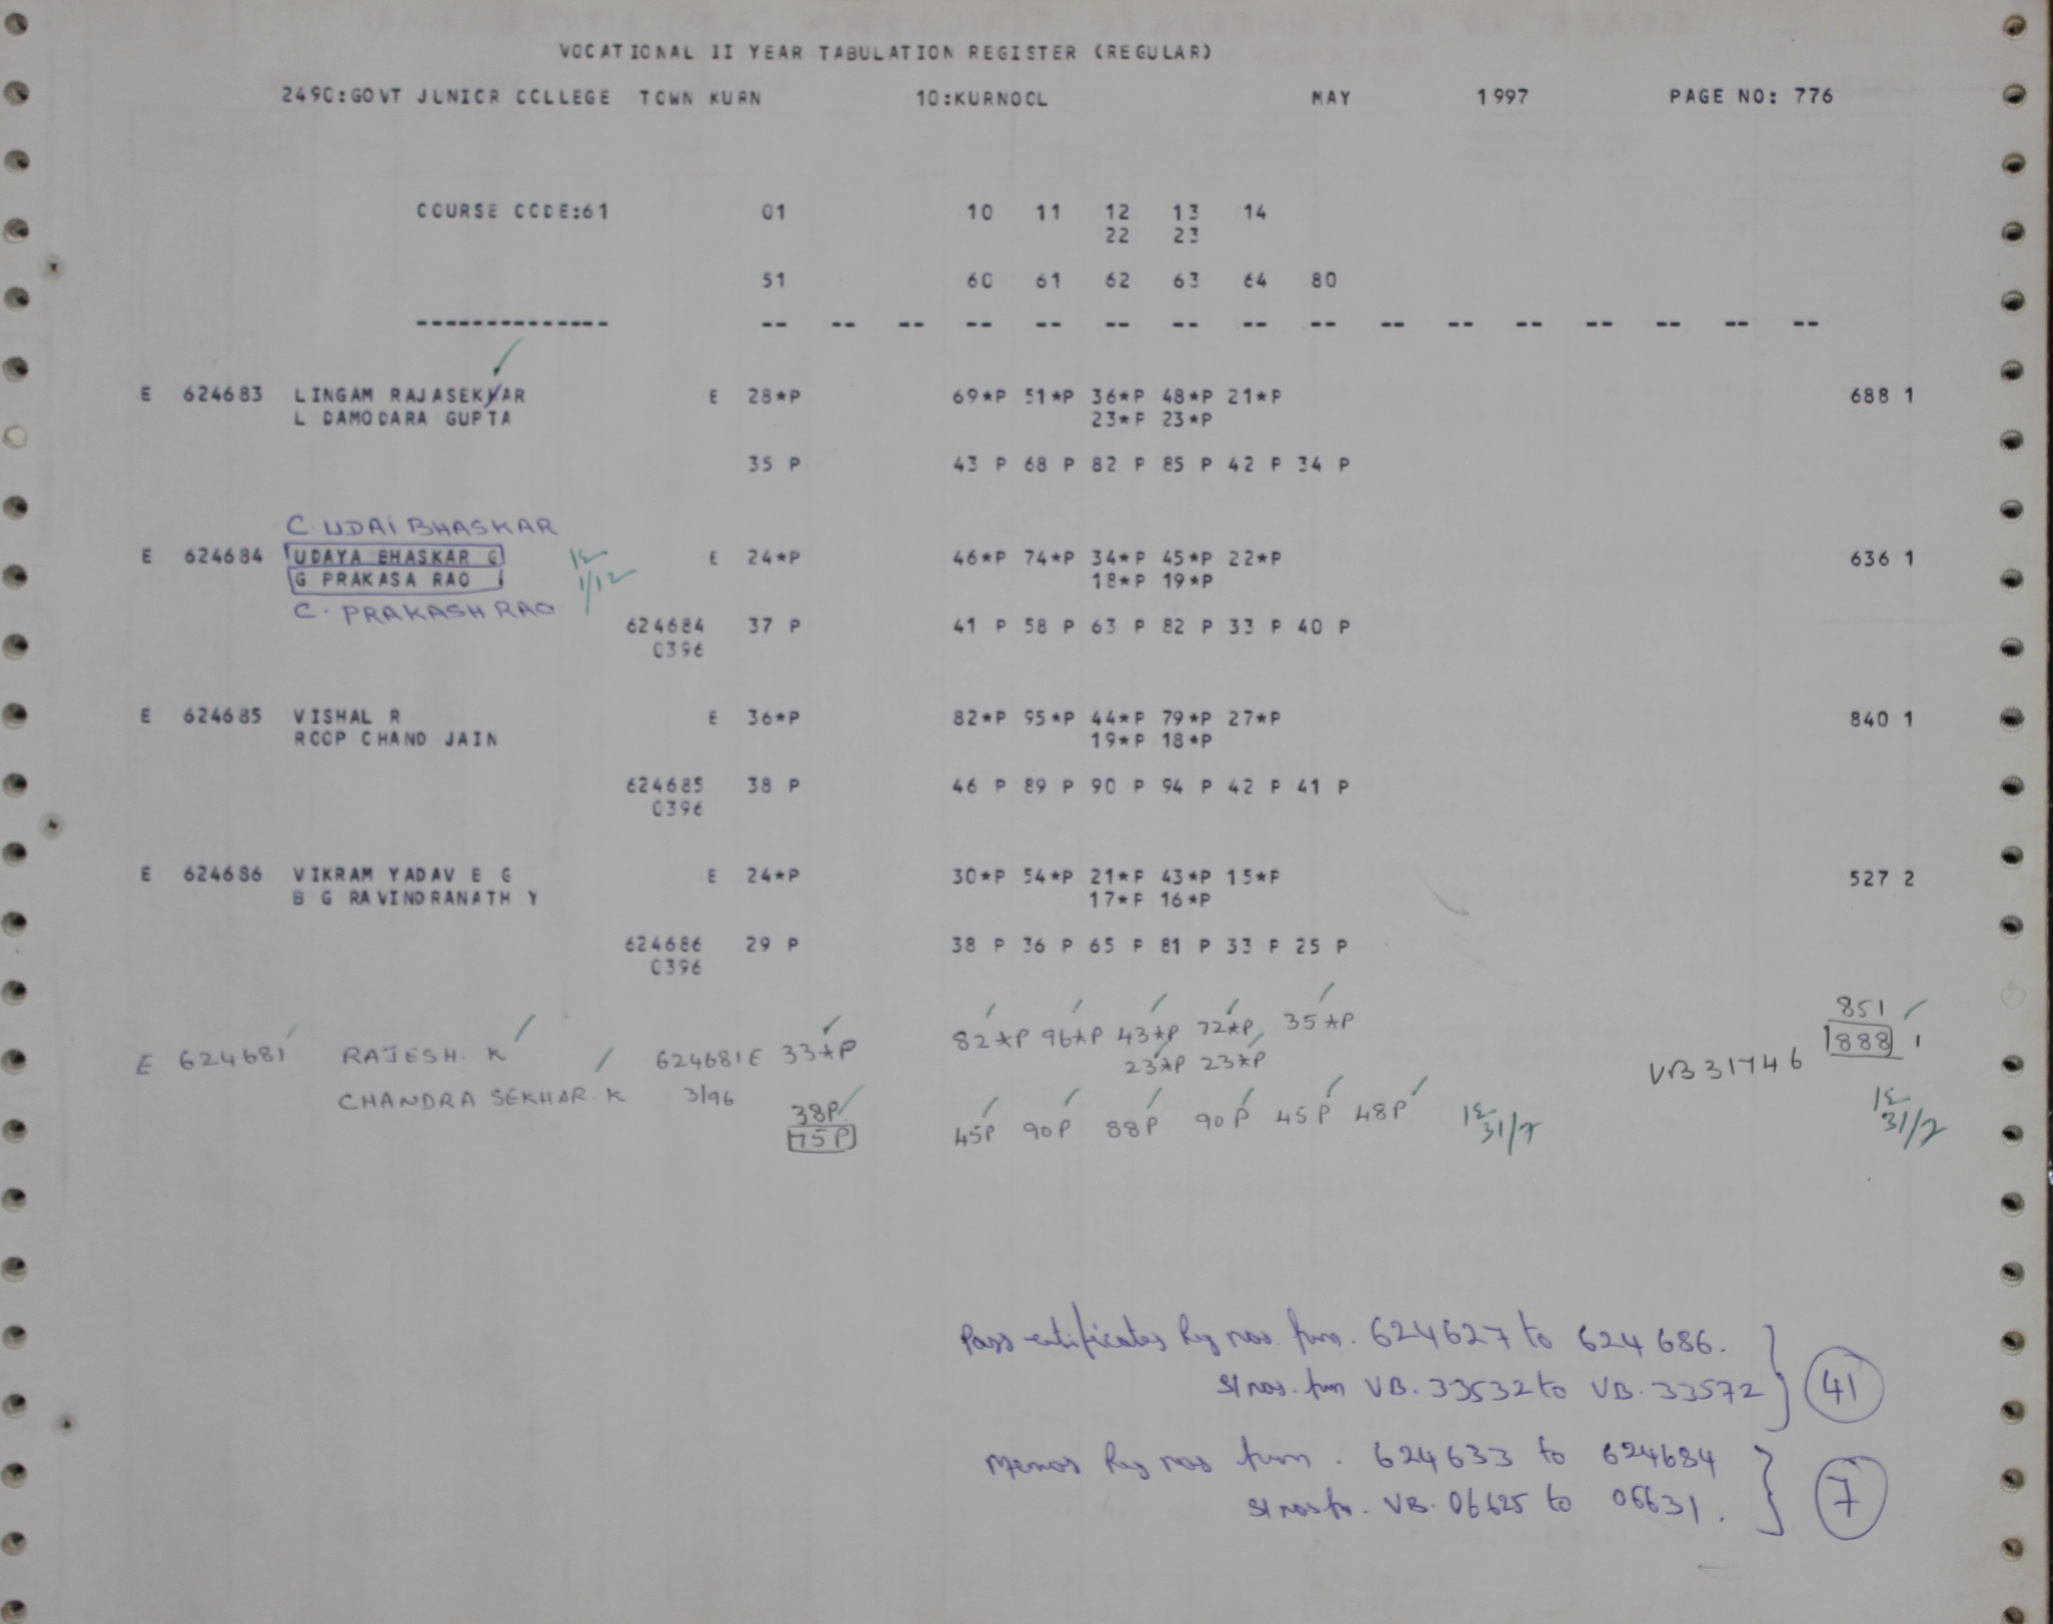 VOCATIONAL II YEAR TABULATION REGISTER (REGULAR)
2490:GOVT JUNIOR COLLEGE TOWN KURN 10:KURNOOL MAY 1997 PAGE NO: 776
COURSE CODE:61 01 10 11 12 13 14
22 23
51 60 61 62 63 64 80
-------------- -- -- -- -- -- -- -- -- -- -- -- -- -- -- -- --
E 624683 LINGAM RAJASEKHAR E 28*P 69*P 51*P 36*P 48*P 21*P 688 1
L DAMODARA GUPTA 23*P 23*P
35 P 43 P 68 P 82 P 85 P 42 P 34 P
C. UDAI BHASKAR
E 624684 UDAYA BHASKAR G E 24*P 46*P 74*P 34*P 45*P 22*P 636 1
G PRAKASA RAO 1/12 18*P 19*P
C. PRAKASH RAO
624684 37 P 41 P 58 P 63 P 82 P 33 P 40 P
0396
E 624685 VISHAL R E 36*P 82*P 95*P 44*P 79*P 27*P 840 1
ROOP CHAND JAIN 19*P 18*P
624685 38 P 46 P 89 P 90 P 94 P 42 P 41 P
0396
E 624686 VIKRAM YADAV B G E 24*P 30*P 54*P 21*P 43*P 15*P 527 2
B G RAVINDRANATH Y 17*P 16*P
624686 29 P 38 P 36 P 65 P 81 P 33 P 25 P
0396
851
E 624681 RAJESH. K 624681 E 33*P 82*P 96*P 43*P 72*P 35*P VB 31746 888 1
23*P 23*P
CHANDRA SEKHAR. K 3/96 38P 45P 90P 88P 90P 45P 48P 31/7 31/7
75P
Pass certificates Reg nos. from. 624627 to 624686.
Sl nos. from VB. 33532 to VB. 33572 41
Memos Reg nos from. 624633 to 624684
Sl nos fr. VB. 06625 to 06631. 7